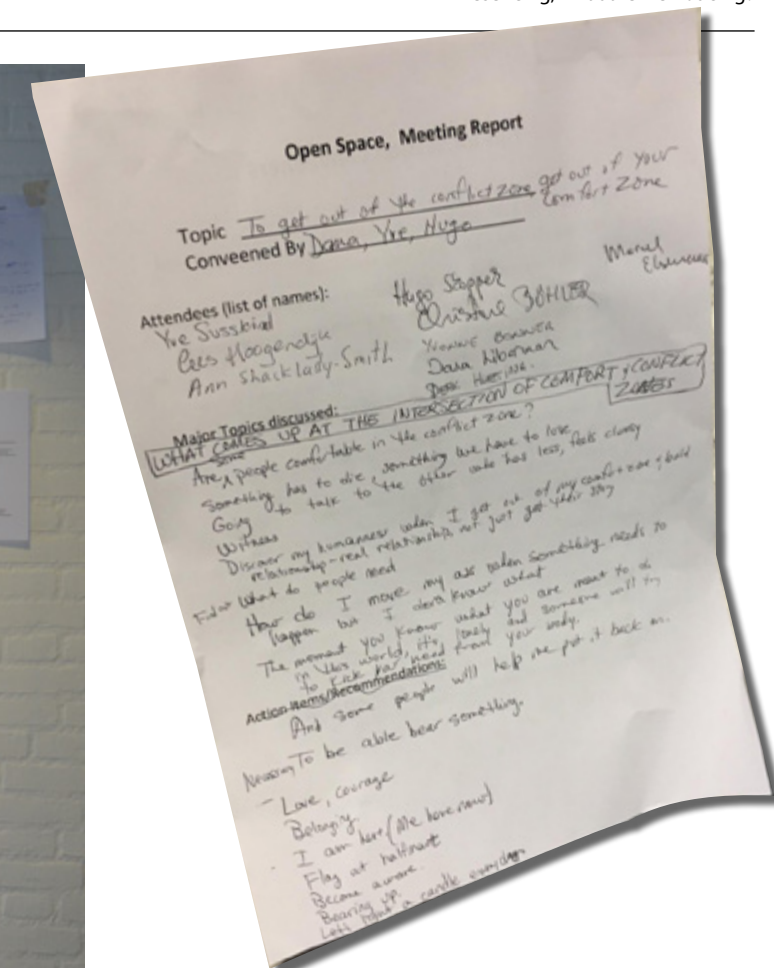 Open Space, Meeting Report
Topic To get out of the conflict zone get out of your
comfort zone
Convened By Dana, Yve, Hugo
Attendees (list of names):
Hugo Stopper
Yve Susskind
Christine BÖHLER
Cees Hoogendijk
Ann Shacklady-Smith
Dana Liberman
Major Topics discussed:
WHAT COMES UP AT THE INTERSECTION OF COMFORT & CONFLICT
ZONES
Are some people comfortable in the conflict zone?
Something has to die, something we have to lose
Going to talk to the other who has less, feels clumsy
Witness
Discover my humanness when I get out of my comfort zone & build
relationship-real relationship, not just get their story
What do people need
How do I move my ass when something needs to
happen but I don't know what
The moment you know what you are meant to do
in this world, it's lonely and someone will try
to kick your head from your body.
Action Items/Recommendations:
And some people will help me put it back on.
To be able bear something.
- Love, courage
Belonging
I am here (Me here now)
Flag at halfmast
Become aware.
Bearing up.
Let's light a candle everyday